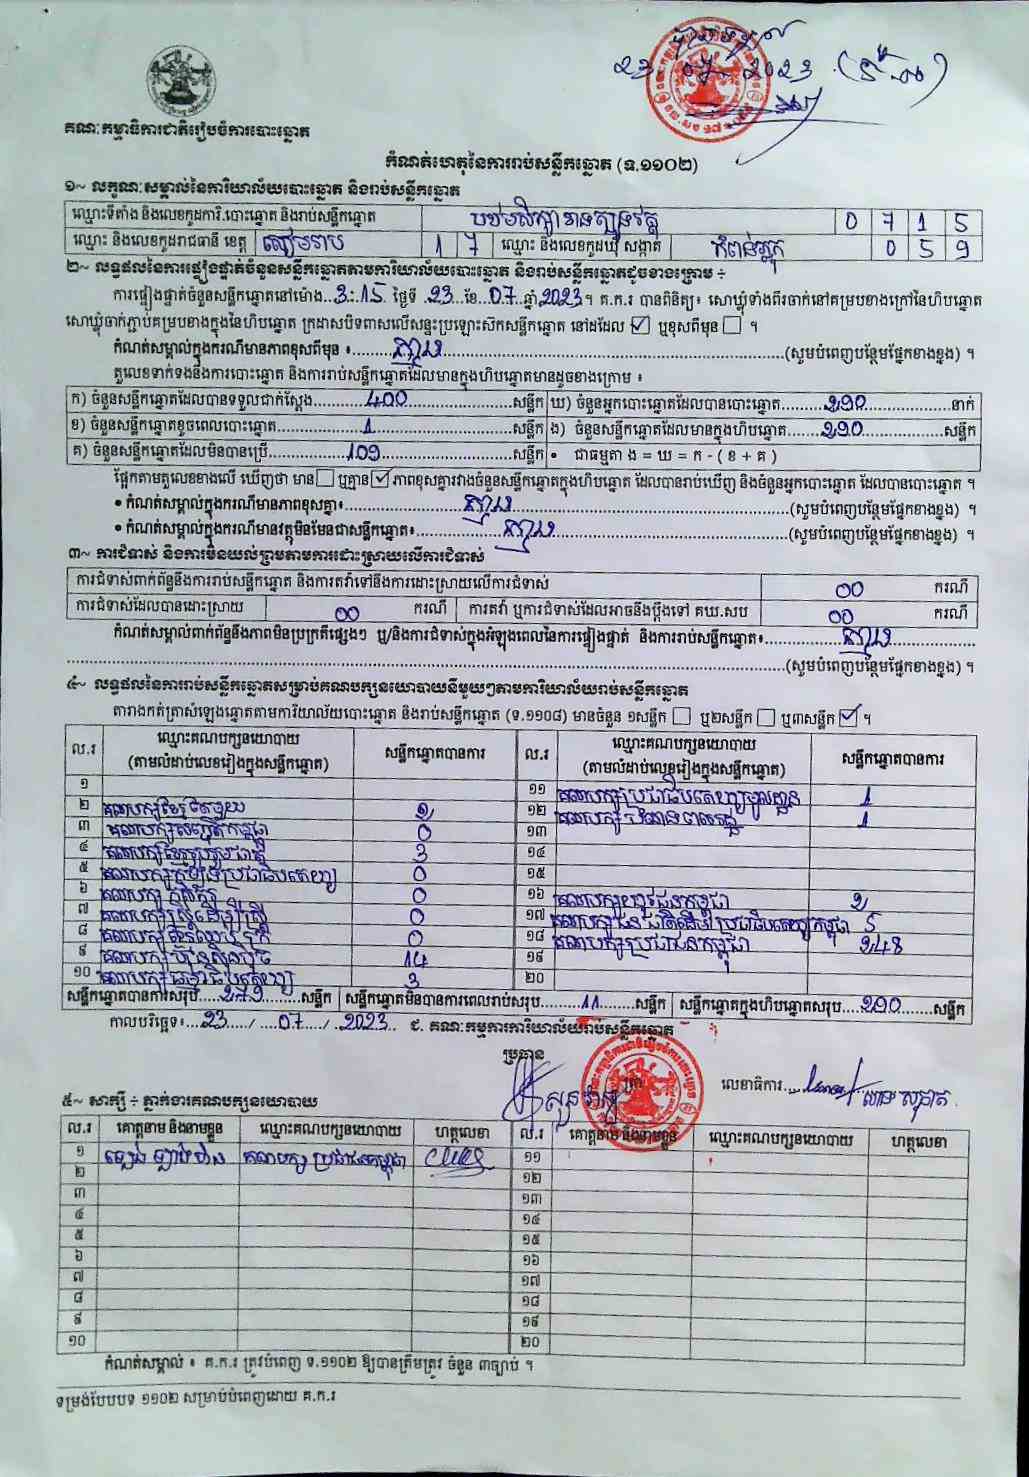 ២៣ ០៧ 2023
គណៈកម្មាធិការជាតិរៀបចំការបោះឆ្នោត
កំណត់ហេតុនៃការរាប់សន្លឹកឆ្នោត (ទ.១១០២)
១~ លក្ខណៈសម្គាល់នៃការិយាល័យបោះឆ្នោត និងរាប់សន្លឹកឆ្នោត
ឈ្មោះទីតាំង និងលេខកូដការិ.បោះឆ្នោត និងរាប់សន្លឹកឆ្នោត 0 7 1 5
ឈ្មោះ និងលេខកូដរាជធានី ខេត្ត សៀមរាប 1 7 ឈ្មោះ និងលេខកូដឃុំ សង្កាត់ 0 5 9
២~ លទ្ធផលនៃការផ្ទៀងផ្ទាត់ចំនួនសន្លឹកឆ្នោតតាមការិយាល័យបោះឆ្នោត និងរាប់សន្លឹកឆ្នោតដូចខាងក្រោម ÷
ការផ្ទៀងផ្ទាត់ចំនួនសន្លឹកឆ្នោតនៅម៉ោង..3:15 ថ្ងៃទី .23...ខែ..07..ឆ្នាំ.2023។ គ.ក.រ បានពិនិត្យ៖ សោឃ្លុំទាំងពីរចាក់នៅគម្របខាងក្រៅនៃហិបឆ្នោត
សោឃ្លុំចាក់ភ្ជាប់គម្របខាងក្នុងនៃហិបឆ្នោត ក្រដាសបិទពាសលើសន្ទះប្រឡោះស៊កសន្លឹកឆ្នោត នៅដដែល ☑ ឬខុសពីមុន ☐ ។
កំណត់សម្គាល់ក្នុងករណីមានភាពខុសពីមុន ៖ គ្មាន (សូមបំពេញបន្ថែមផ្នែកខាងខ្នង) ។
តួលេខទាក់ទងនឹងការបោះឆ្នោត និងការរាប់សន្លឹកឆ្នោតដែលមានក្នុងហិបឆ្នោតមានដូចខាងក្រោម ៖
ក) ចំនួនសន្លឹកឆ្នោតដែលបានទទួលជាក់ស្តែង 400 សន្លឹក ឃ) ចំនួនអ្នកបោះឆ្នោតដែលបានបោះឆ្នោត 290 នាក់
ខ) ចំនួនសន្លឹកឆ្នោតខូចពេលបោះឆ្នោត 1 សន្លឹក ង) ចំនួនសន្លឹកឆ្នោតដែលមានក្នុងហិបឆ្នោត 290 សន្លឹក
គ) ចំនួនសន្លឹកឆ្នោតដែលមិនបានប្រើ 109 សន្លឹក • ជាធម្មតា ង = ឃ = ក - ( ខ + គ )
ផ្អែកតាមតួលេខខាងលើ ឃើញថា មាន ☐ ឬគ្មាន ☑ ភាពខុសគ្នារវាងចំនួនសន្លឹកឆ្នោតក្នុងហិបឆ្នោត ដែលបានរាប់ឃើញ និងចំនួនអ្នកបោះឆ្នោត ដែលបានបោះឆ្នោត ។
• កំណត់សម្គាល់ក្នុងករណីមានភាពខុសគ្នា៖ គ្មាន (សូមបំពេញបន្ថែមផ្នែកខាងខ្នង) ។
• កំណត់សម្គាល់ក្នុងករណីមានវត្ថុមិនមែនជាសន្លឹកឆ្នោត៖ គ្មាន (សូមបំពេញបន្ថែមផ្នែកខាងខ្នង) ។
៣~ ការជំទាស់ និងការមិនយល់ព្រមតាមការដោះស្រាយលើការជំទាស់
ការជំទាស់ពាក់ព័ន្ធនឹងការរាប់សន្លឹកឆ្នោត និងការតវ៉ាទៅនឹងការដោះស្រាយលើការជំទាស់ 00 ករណី
ការជំទាស់ដែលបានដោះស្រាយ 00 ករណី ការតវ៉ា ឬការជំទាស់ដែលអាចនឹងប្តឹងទៅ គឃ.សប 00 ករណី
កំណត់សម្គាល់ពាក់ព័ន្ធនឹងភាពមិនប្រក្រតីផ្សេងៗ ឬ/និងការជំទាស់ក្នុងអំឡុងពេលនៃការផ្ទៀងផ្ទាត់ និងការរាប់សន្លឹកឆ្នោត៖ គ្មាន
(សូមបំពេញបន្ថែមផ្នែកខាងខ្នង) ។
៤~ លទ្ធផលនៃការរាប់សន្លឹកឆ្នោតសម្រាប់គណបក្សនយោបាយនីមួយៗតាមការិយាល័យរាប់សន្លឹកឆ្នោត
តារាងកត់ត្រាសំឡេងឆ្នោតតាមការិយាល័យបោះឆ្នោត និងរាប់សន្លឹកឆ្នោត (ទ.១១០៨) មានចំនួន ១សន្លឹក ☐ ឬ២សន្លឹក ☐ ឬ៣សន្លឹក ☑ ។
ល.រ ឈ្មោះគណបក្សនយោបាយ (តាមលំដាប់លេខរៀងក្នុងសន្លឹកឆ្នោត) សន្លឹកឆ្នោតបានការ ល.រ ឈ្មោះគណបក្សនយោបាយ (តាមលំដាប់លេខរៀងក្នុងសន្លឹកឆ្នោត) សន្លឹកឆ្នោតបានការ
១ ១១ គណបក្សប្រជាធិបតេយ្យមូលដ្ឋាន 1
២ គណបក្សខ្មែរតែមួយ 2 ១២ គណបក្ស 1
៣ គណបក្ស 0 ១៣
៤ គណបក្សខ្មែររួបរួមជាតិ 3 ១៤
៥ គណបក្ស ប្រជាធិបតេយ្យ 0 ១៥
៦ គណបក្ស កសិករ 0 ១៦ គណបក្សយុវជនកម្ពុជា 2
៧ គណបក្សស្ត្រីដើម្បីស្ត្រី 0 ១៧ គណបក្សជនជាតិដើមប្រជាធិបតេយ្យកម្ពុជា 5
៨ គណបក្ស 0 ១៨ គណបក្សប្រជាជនកម្ពុជា 248
៩ គណបក្សហ្វ៊ុនស៊ិនប៉ិច 14 ១៩
១០ គណបក្សធម្មាធិបតេយ្យ 3 ២០
សន្លឹកឆ្នោតបានការសរុប 279 សន្លឹក សន្លឹកឆ្នោតមិនបានការពេលរាប់សរុប 11 សន្លឹក សន្លឹកឆ្នោតក្នុងហិបឆ្នោតសរុប 290 សន្លឹក
កាលបរិច្ឆេទ៖ 23 / 07 / 2023 ជ. គណៈកម្មការការិយាល័យរាប់សន្លឹកឆ្នោត
ប្រធាន
លេខាធិការ
៥~ សាក្សី ÷ ភ្នាក់ងារគណបក្សនយោបាយ
ល.រ គោត្តនាម និងនាមខ្លួន ឈ្មោះគណបក្សនយោបាយ ហត្ថលេខា ល.រ គោត្តនាម និងនាមខ្លួន ឈ្មោះគណបក្សនយោបាយ ហត្ថលេខា
១ គណបក្ស ប្រជាជនកម្ពុជា ១១
២ ១២
៣ ១៣
៤ ១៤
៥ ១៥
៦ ១៦
៧ ១៧
៨ ១៨
៩ ១៩
១០ ២០
កំណត់សម្គាល់ ៖ គ.ក.រ ត្រូវបំពេញ ទ.១១០២ ឱ្យបានត្រឹមត្រូវ ចំនួន ៣ច្បាប់ ។
ទម្រង់បែបបទ ១១០២ សម្រាប់បំពេញដោយ គ.ក.រ